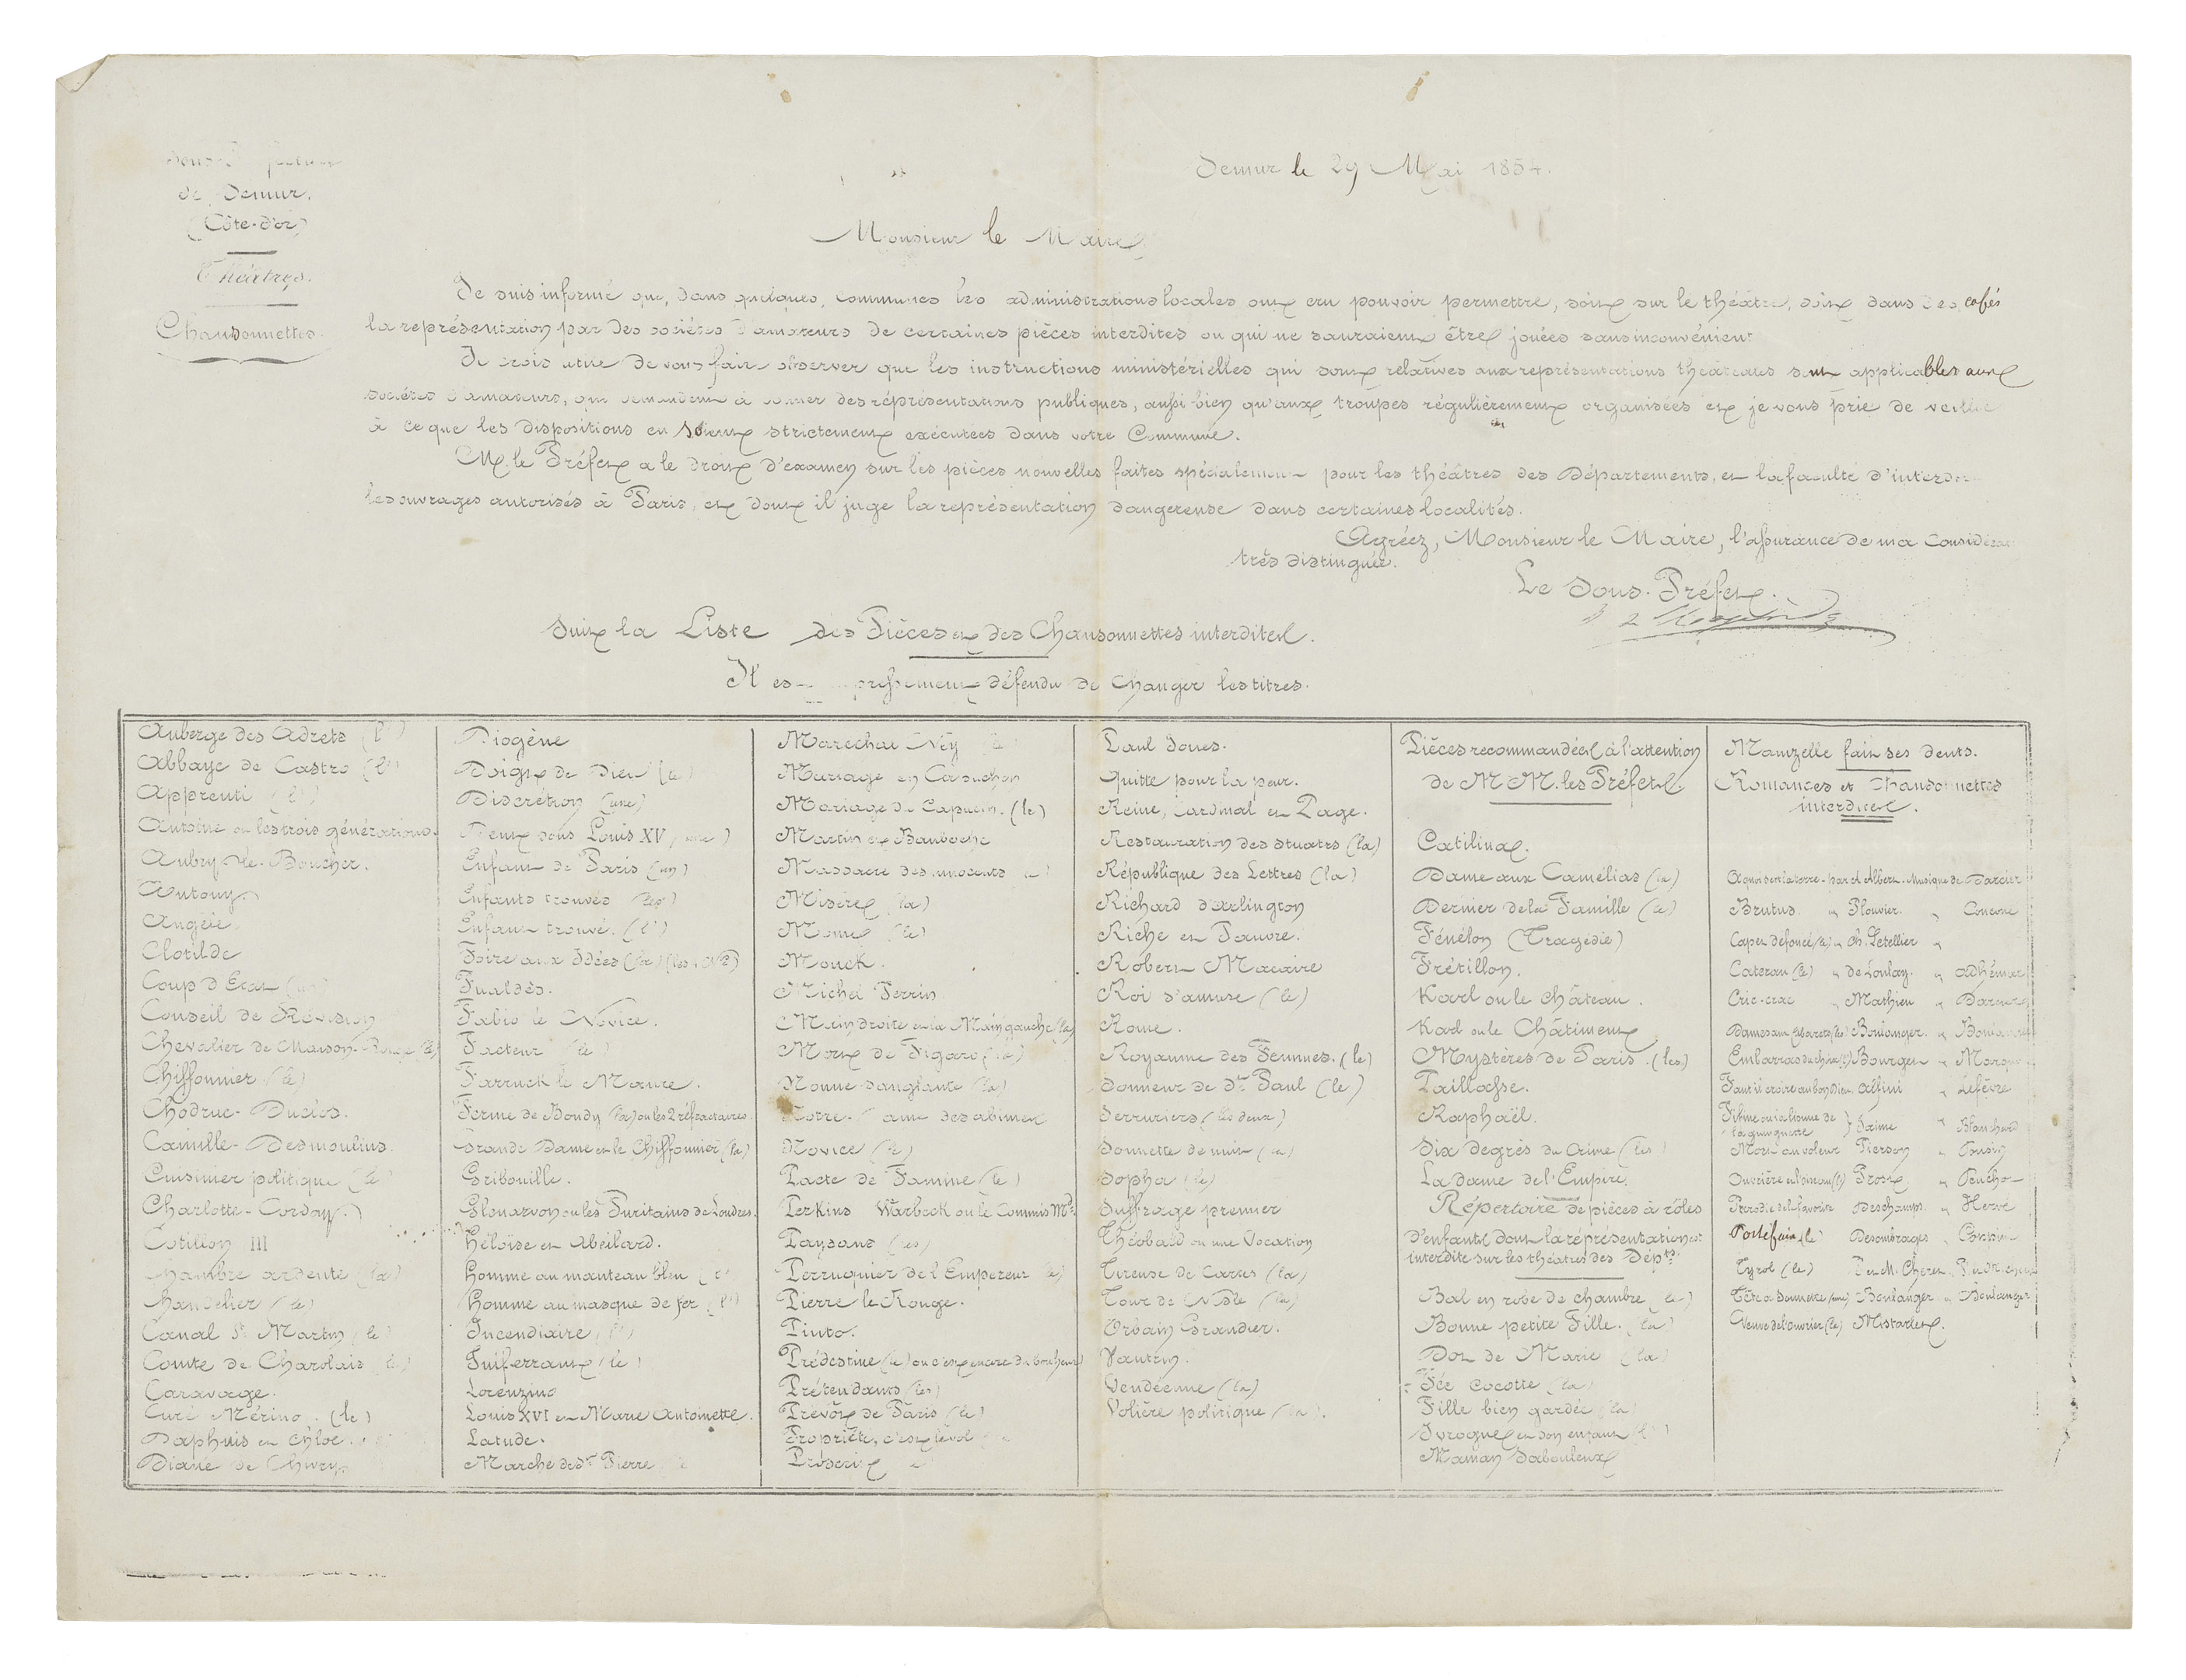 de Semur.
(Côte-d'or)
Théâtres.
Chansonnettes.
Semur le 29 Mai 1854.
Monsieur le Maire
Je suis informé que, dans quelques communes les administrations locales ont cru pouvoir permettre, soit sur le théâtre, soit dans des cafés
la représentation par des sociétés d'amateurs de certaines pièces interdites ou qui ne sauraient être jouées sans inconvénient
Je crois utile de vous faire observer que les instructions ministérielles qui sont relatives aux représentations théâtrales sont applicables aux
sociétés d'amateurs, qui demandent à donner des représentations publiques, aussi bien qu'aux troupes régulièrement organisées et je vous prie de veiller
à ce que les dispositions en soient strictement exécutées dans votre Commune.
M. le Préfet a le droit d'examen sur les pièces nouvelles faites spécialement pour les théâtres des Départements, et la faculté d'interdire
les ouvrages autorisés à Paris, et dont il juge la représentation dangereuse dans certaines localités.
Agréez, Monsieur le Maire, l'assurance de ma Considération
très distinguée.
Le Sous-Préfet.
Suit la Liste des Pièces et des Chansonnettes interdites.
Il est expressement défendu de changer les titres.
Auberge des Adrets (l')
Abbaye de Castro (l')
Apprenti (l')
Antoine ou les trois générations.
Aubry-le-Boucher.
Antony.
Angèle.
Clotilde
Coup d'Etat (un)
Conseil de Révision
Chevalier de Maison-Rouge (le)
Chiffonnier (le)
Chodruc-Duclos.
Camille-Desmoulins.
Cuisinier politique (le)
Charlotte-Corday.
Cotillon III
Chambre ardente (la)
Chandelier (le)
Canal St Martin (le)
Comte de Charolais (le)
Caravage.
Curé Mérino. (le)
Daphnis et Chloé.
Diane de Chivry.
Diogène
Doigt de Dieu (le)
Discrétion (une)
Deux sous Louis XV
Enfant de Paris (un)
Enfants trouvés (les)
Enfant trouvé. (l')
Foire aux Idées (la)
Fualdès.
Fabio le Novice.
Facteur (le)
Farruck le Maure.
Ferme de Bondy (la) ou les 2 réfractaires.
Grande Dame et le Chiffonnier (la)
Gribouille.
Glenarvon ou les Puritains de Londres.
Héloïse et Abeilard.
Homme au manteau bleu (l')
Homme au masque de fer (l')
Incendiaire (l')
Juif errant (le)
Lorenzino
Louis XVI et Marie Antoinette.
Latude.
Marche de St Pierre
Marechal Ney (le)
Mariage en Capuchon
Mariage du Capucin. (le)
Martin et Bamboche
Massacre des innocents (le)
Misère (la)
Moine (le)
Monck.
Michel Perrin
Main droite et la Main gauche (la)
Mort de Figaro (la)
Nonne sanglante (la)
Notre-Dame des abimes
Novice (le)
Pacte de Famine (le)
Perkins Warbeck ou le Commis Md.
Paysans (les)
Perruquier de l'Empereur (le)
Pierre le Rouge.
Pinto.
Prédestiné (le) ou c'est encore du bonheur
Prétendants (les)
Prévôt de Paris (le)
Propriété, c'est le vol
Proscrit
Paul Jones.
Quitte pour la peur.
Reine, Cardinal et Page.
Restauration des Stuarts (la)
République des Lettres (la)
Richard d'arlington
Riche et Pauvre.
Robert Macaire
Roi s'amuse (le)
Rome.
Royaume des Femmes. (le)
Sonneur de St Paul (le)
Serruriers (les deux)
Sonnette de nuit (la)
Sopha (le)
Suffrage premier
Théobald ou une Vocation
Tireuse de Cartes (la)
Tour de Nesle (la)
Urbain Grandier.
Vautrin.
Vendéenne (la)
Volière politique (la).
Pièces recommandées à l'attention
de M M. les Préfets.
Catilina.
Dame aux Camélias (la)
Dernier de la Famille (le)
Fénélon (Tragédie)
Frétillon.
Karl ou le château.
Karl ou le Châtiment
Mystères de Paris. (les)
Paillasse.
Raphaël.
Six degrés du Crime (les)
La dame de l'Empire.
Répertoire de pièces à rôles
d'enfants dont la représentation est
interdite sur les théâtres des Dépts.
Bal en robe de chambre (le)
Bonne petite Fille. (la)
Dot de Marie (la)
Fée Cocotte (la)
Fille bien gardée (la)
Ivrogne et son enfant (l')
Maman Sabouleux
Mamzelle fait ses dents.
Romances et Chansonnettes
interdites.
A quoi sert la terre - par A Albert - Musique de Darcier
Brutus " Plouvier. " Concone
de Loulay. " Adhémar
Cric-crac " Mathieu " Darcier
Boulanger.
Bourget
Faut il croire au bon Dieu Alfini " Lefèvre
Jaime " Blanchard
Mort au voleur Pierson " Cousin
Parodie de la favorite Deschamps. " Hervé
Portefaix (le) Desombrages
Tyrol (le)
Boulanger " Boulanger
Veuve de l'ouvrier (la)